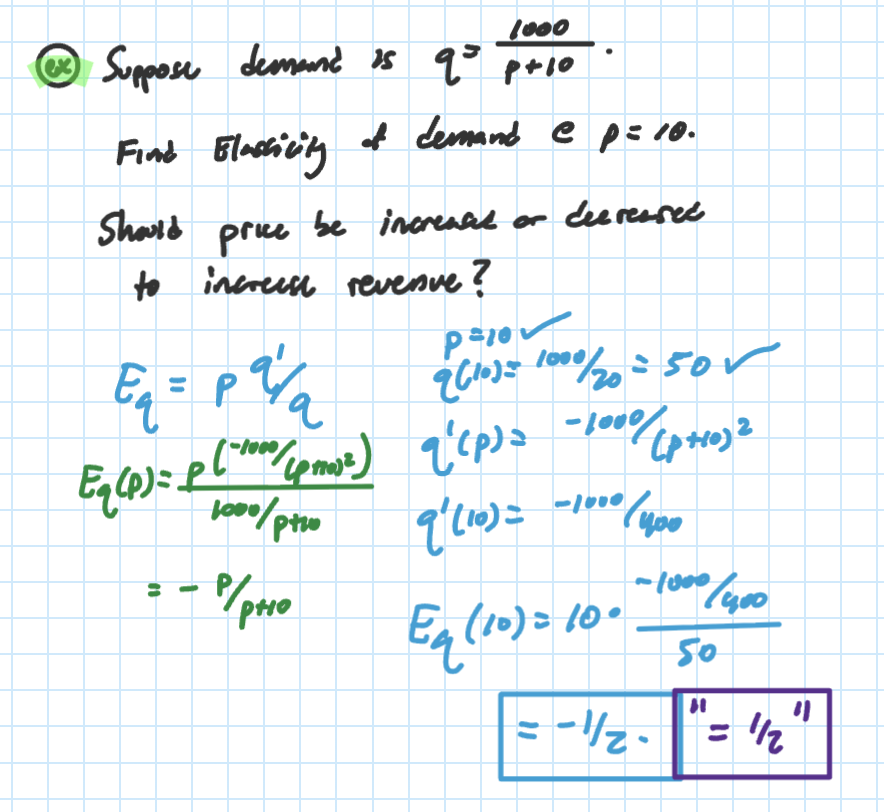 ex Suppose demand is q = 1000/(p+10).
Find Elasticity of demand @ p = 10.
Should price be increased or decreased
to increase revenue?
E_q = p q'/q
E_q(p) = p(-1000/(p+10)²) / (1000/p+10)
= - p/p+10
p = 10 ✓
q(10) = 1000/20 = 50 ✓
q'(p) = -1000/(p+10)²
q'(10) = -1000/400
E_q(10) = 10 · (-1000/400)/50
= -1/2. "= 1/2"